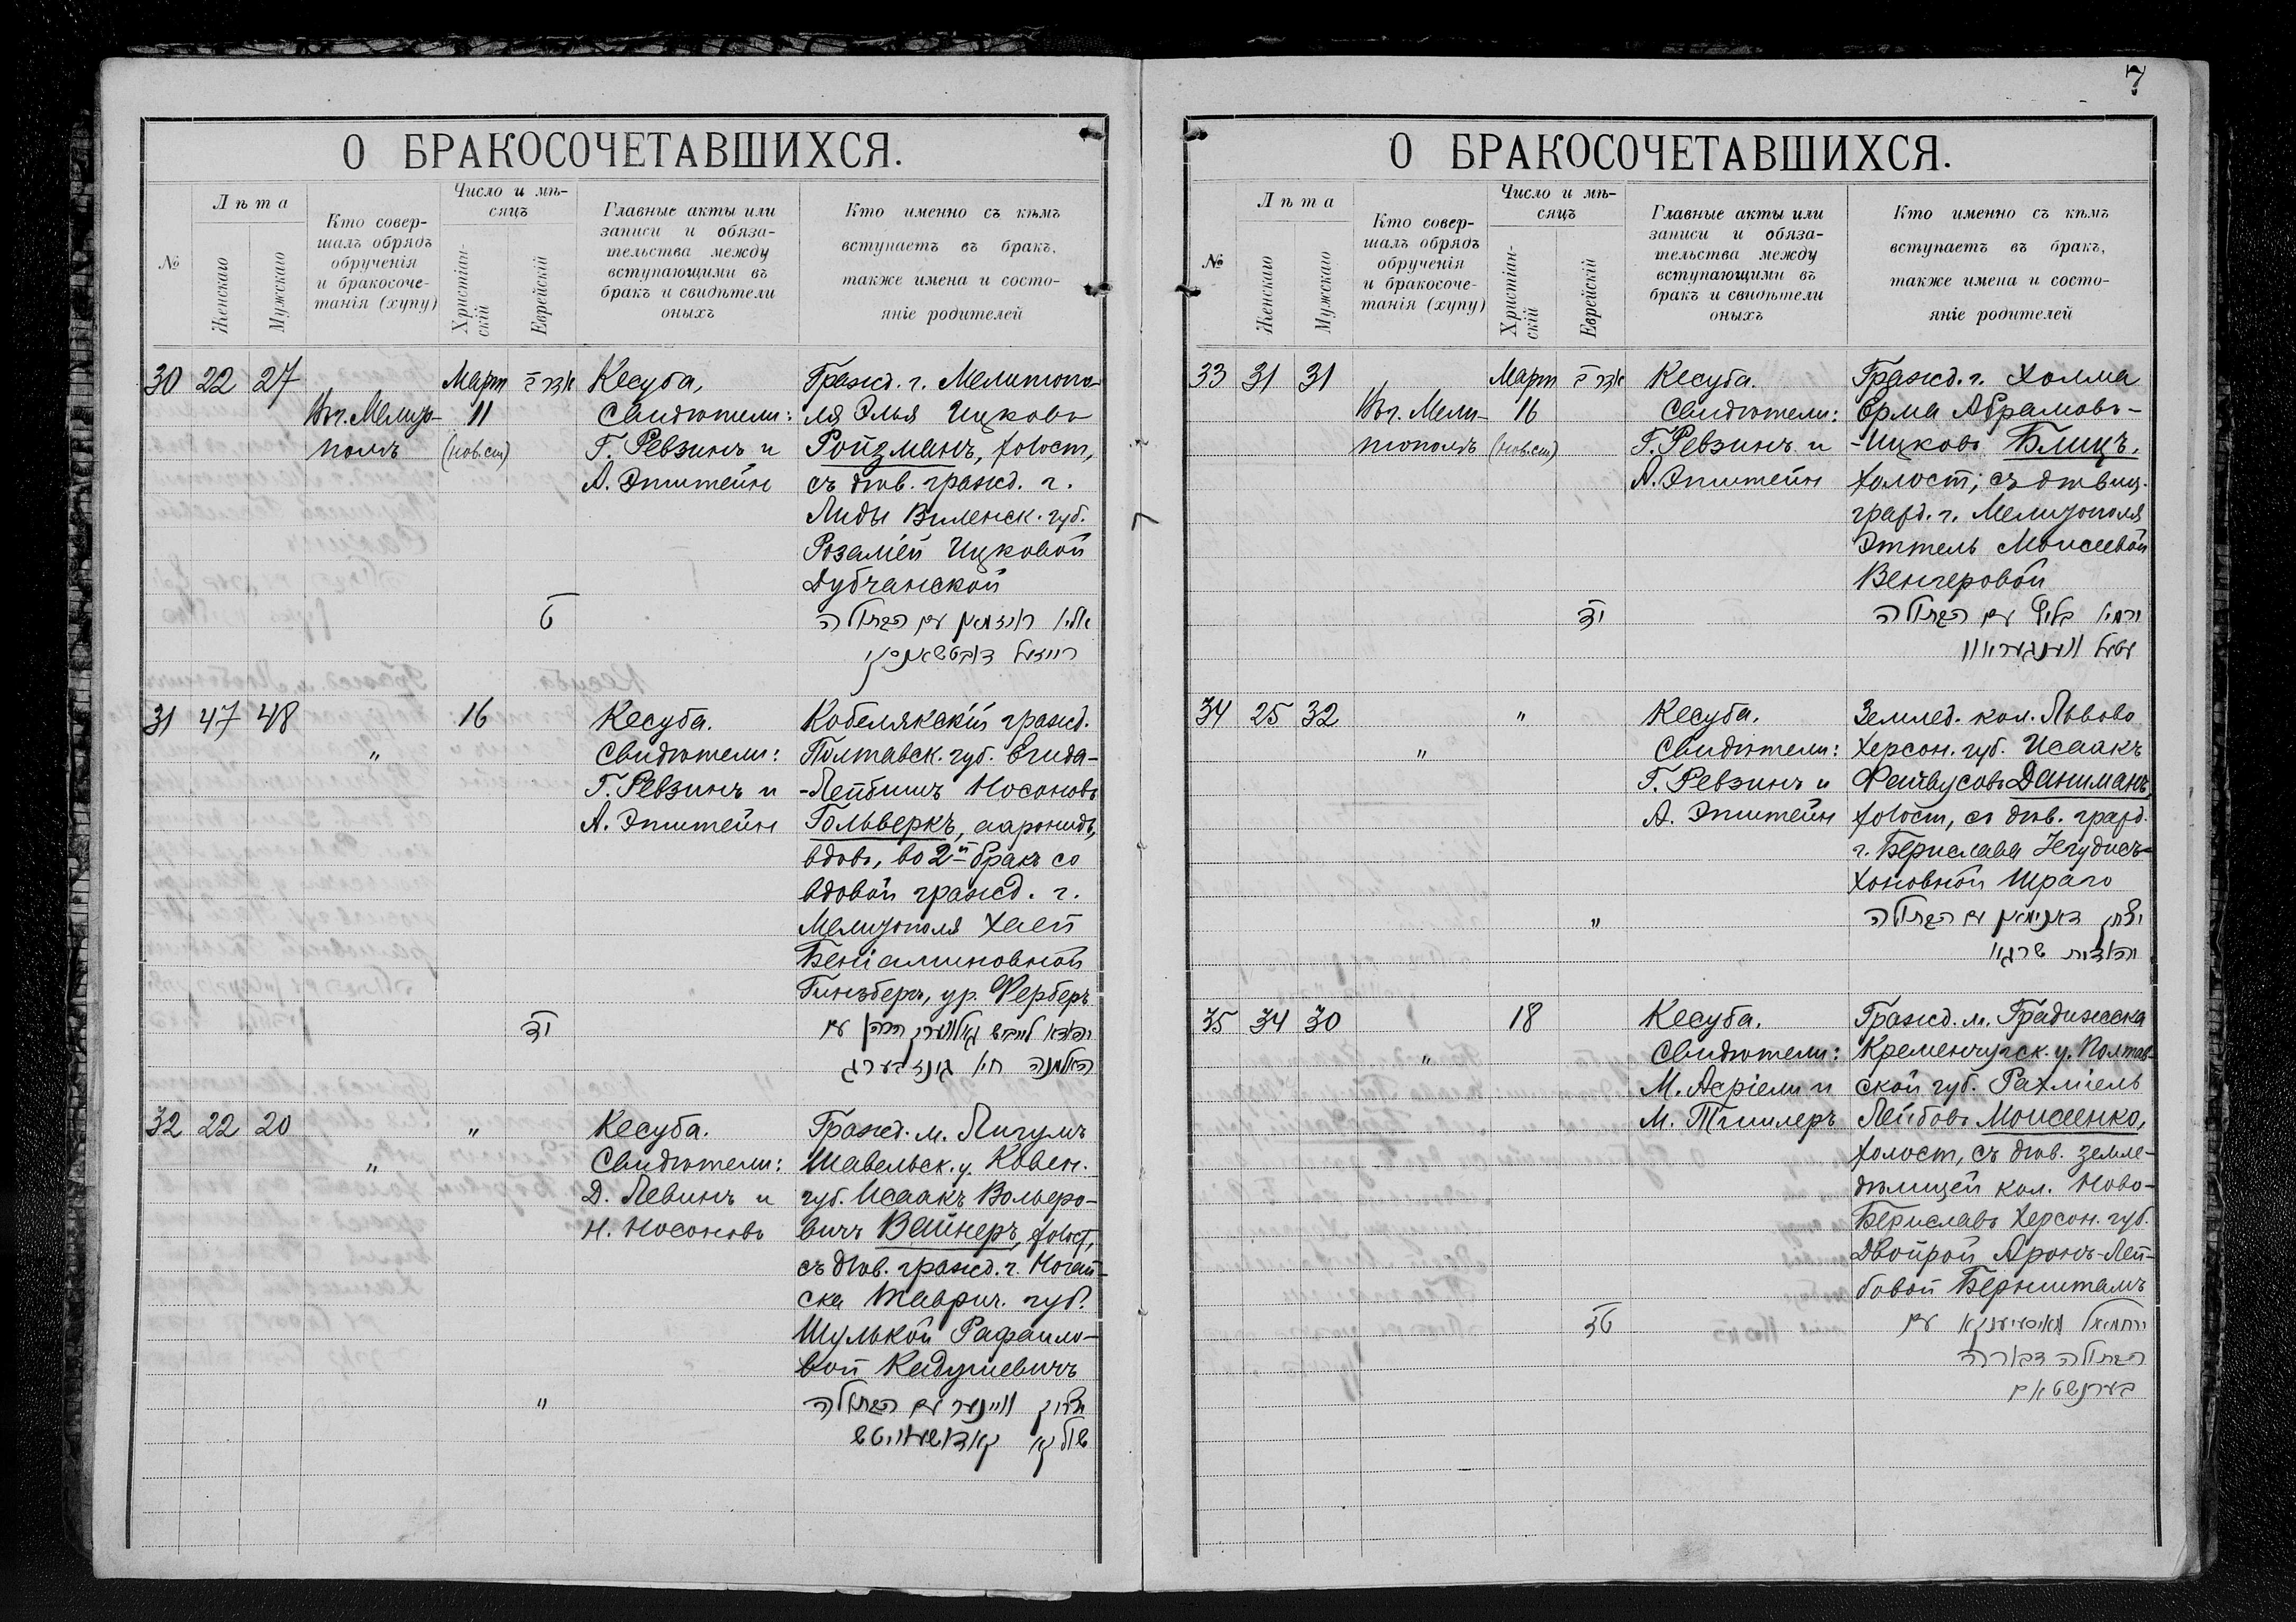 7
О БРАКОСОЧЕТАВШИХСЯ.
№
Лѣта
Женскаго
Мужскаго
Кто совер-
шалъ обрядъ
обрученія
и бракосоче-
танія (хупу)
Число и мѣ-
сяцъ
Христіан-
скій
Еврейскій
Главные акты или
записи и обяза-
тельства между
вступающими въ
бракъ и свидѣтели
оныхъ
Кто именно съ кѣмъ
вступаетъ въ бракъ,
также имена и состо-
яніе родителей
30 22 27
Въ г. Мелито-
полѣ
Март
11
(нов.ст)
ט
Кесуба,
Свидѣтели:
Г. Ревзинъ и
А. Эпштейн
Гражд. г. Мелитопо-
ля Элья Ицковъ
Ройзманъ, холост,
съ дѣв. гражд. г.
Лиды Виленск. губ.
Розаліей Ицковой
Дубчанской
אליי רויזמאן עם הבתולה
רייזל דובטשאנסקי
31 47 48
"
16
יד
Кесуба.
Свидѣтели:
Г. Ревзинъ и
А. Эпштейн
Кобелякскій гражд.
Полтавск. губ. Егида-
-Лейбишъ Носоновъ
Гольверкъ, ааронидъ,
вдовъ, во 2й бракъ со
вдовой гражд. г.
Мелитополя Хаей
Беніаминовной
Гинзберъ, ур. Ферберъ
לייבוש גאלווערק הכהן עם
האלמנה חי' גינזבערג
32 22 20
"
"
"
Кесуба.
Свидѣтели:
Д. Левинъ и
Н. Носоновъ
Гражд. м. Лигумъ
Шавельск. у. Ковен.
губ. Исаакъ Вольеро-
вичъ Вайнеръ, холост,
съ дѣв. гражд. г. Ногай-
ска Таврич. губ.
Шулькой Рафаило-
вой Кадушевичъ
יצחק וויינער עם הבתולה
שולקא קאדושעוויטש
О БРАКОСОЧЕТАВШИХСЯ.
№
Лѣта
Женскаго
Мужскаго
Кто совер-
шалъ обрядъ
обрученія
и бракосоче-
танія (хупу)
Число и мѣ-
сяцъ
Христіан-
скій
Еврейскій
Главные акты или
записи и обяза-
тельства между
вступающими въ
бракъ и свидѣтели
оныхъ
Кто именно съ кѣмъ
вступаетъ въ бракъ,
также имена и состо-
яніе родителей
33 31 31
Въ г. Мели-
тополѣ
Март
16
(нов.ст)
יד
Кесуба.
Свидѣтели:
Г. Ревзинъ и
А. Эпштейн
Гражд. г. Холма
Ерма Абрамовъ-
-Ицковъ Блицъ,
холост; съ дѣвиц.
гражд. г. Мелитополя
Эттель Моисеевой
Венгеровой
ירמי' בליץ עם הבתולה
עטעל ווענגעראוו
34 25 32
"
"
"
Кесуба.
Свидѣтели:
Г. Ревзинъ и
А. Эпштейн
Землед. кол. Львово
Херсон. губ. Исаакъ
Файвусовъ Даниманъ,
холост, съ дѣв. гражд.
г. Берислава Іегудисъ-
Хоновной Шраго
יצחק דאנימאן עם הבתולה
יהודית שרגאי
35 34 30
"
18
טז
Кесуба.
Свидѣтели:
М. Аспріели и
М. Тпиллеръ
Гражд. м. Градижска
Кременчугск. у. Полтав-
ской губ. Рахміель
Лейбовъ Моисеенко,
холост, съ дѣв. земле-
дѣлицей кол. Ново-
Бериславъ Херсон. губ.
Двойрой Аронъ-Лей-
бовой Бернштамъ
ירחמיאל מאיסיענקא עם
הבתולה דבורה
בערנשטאם